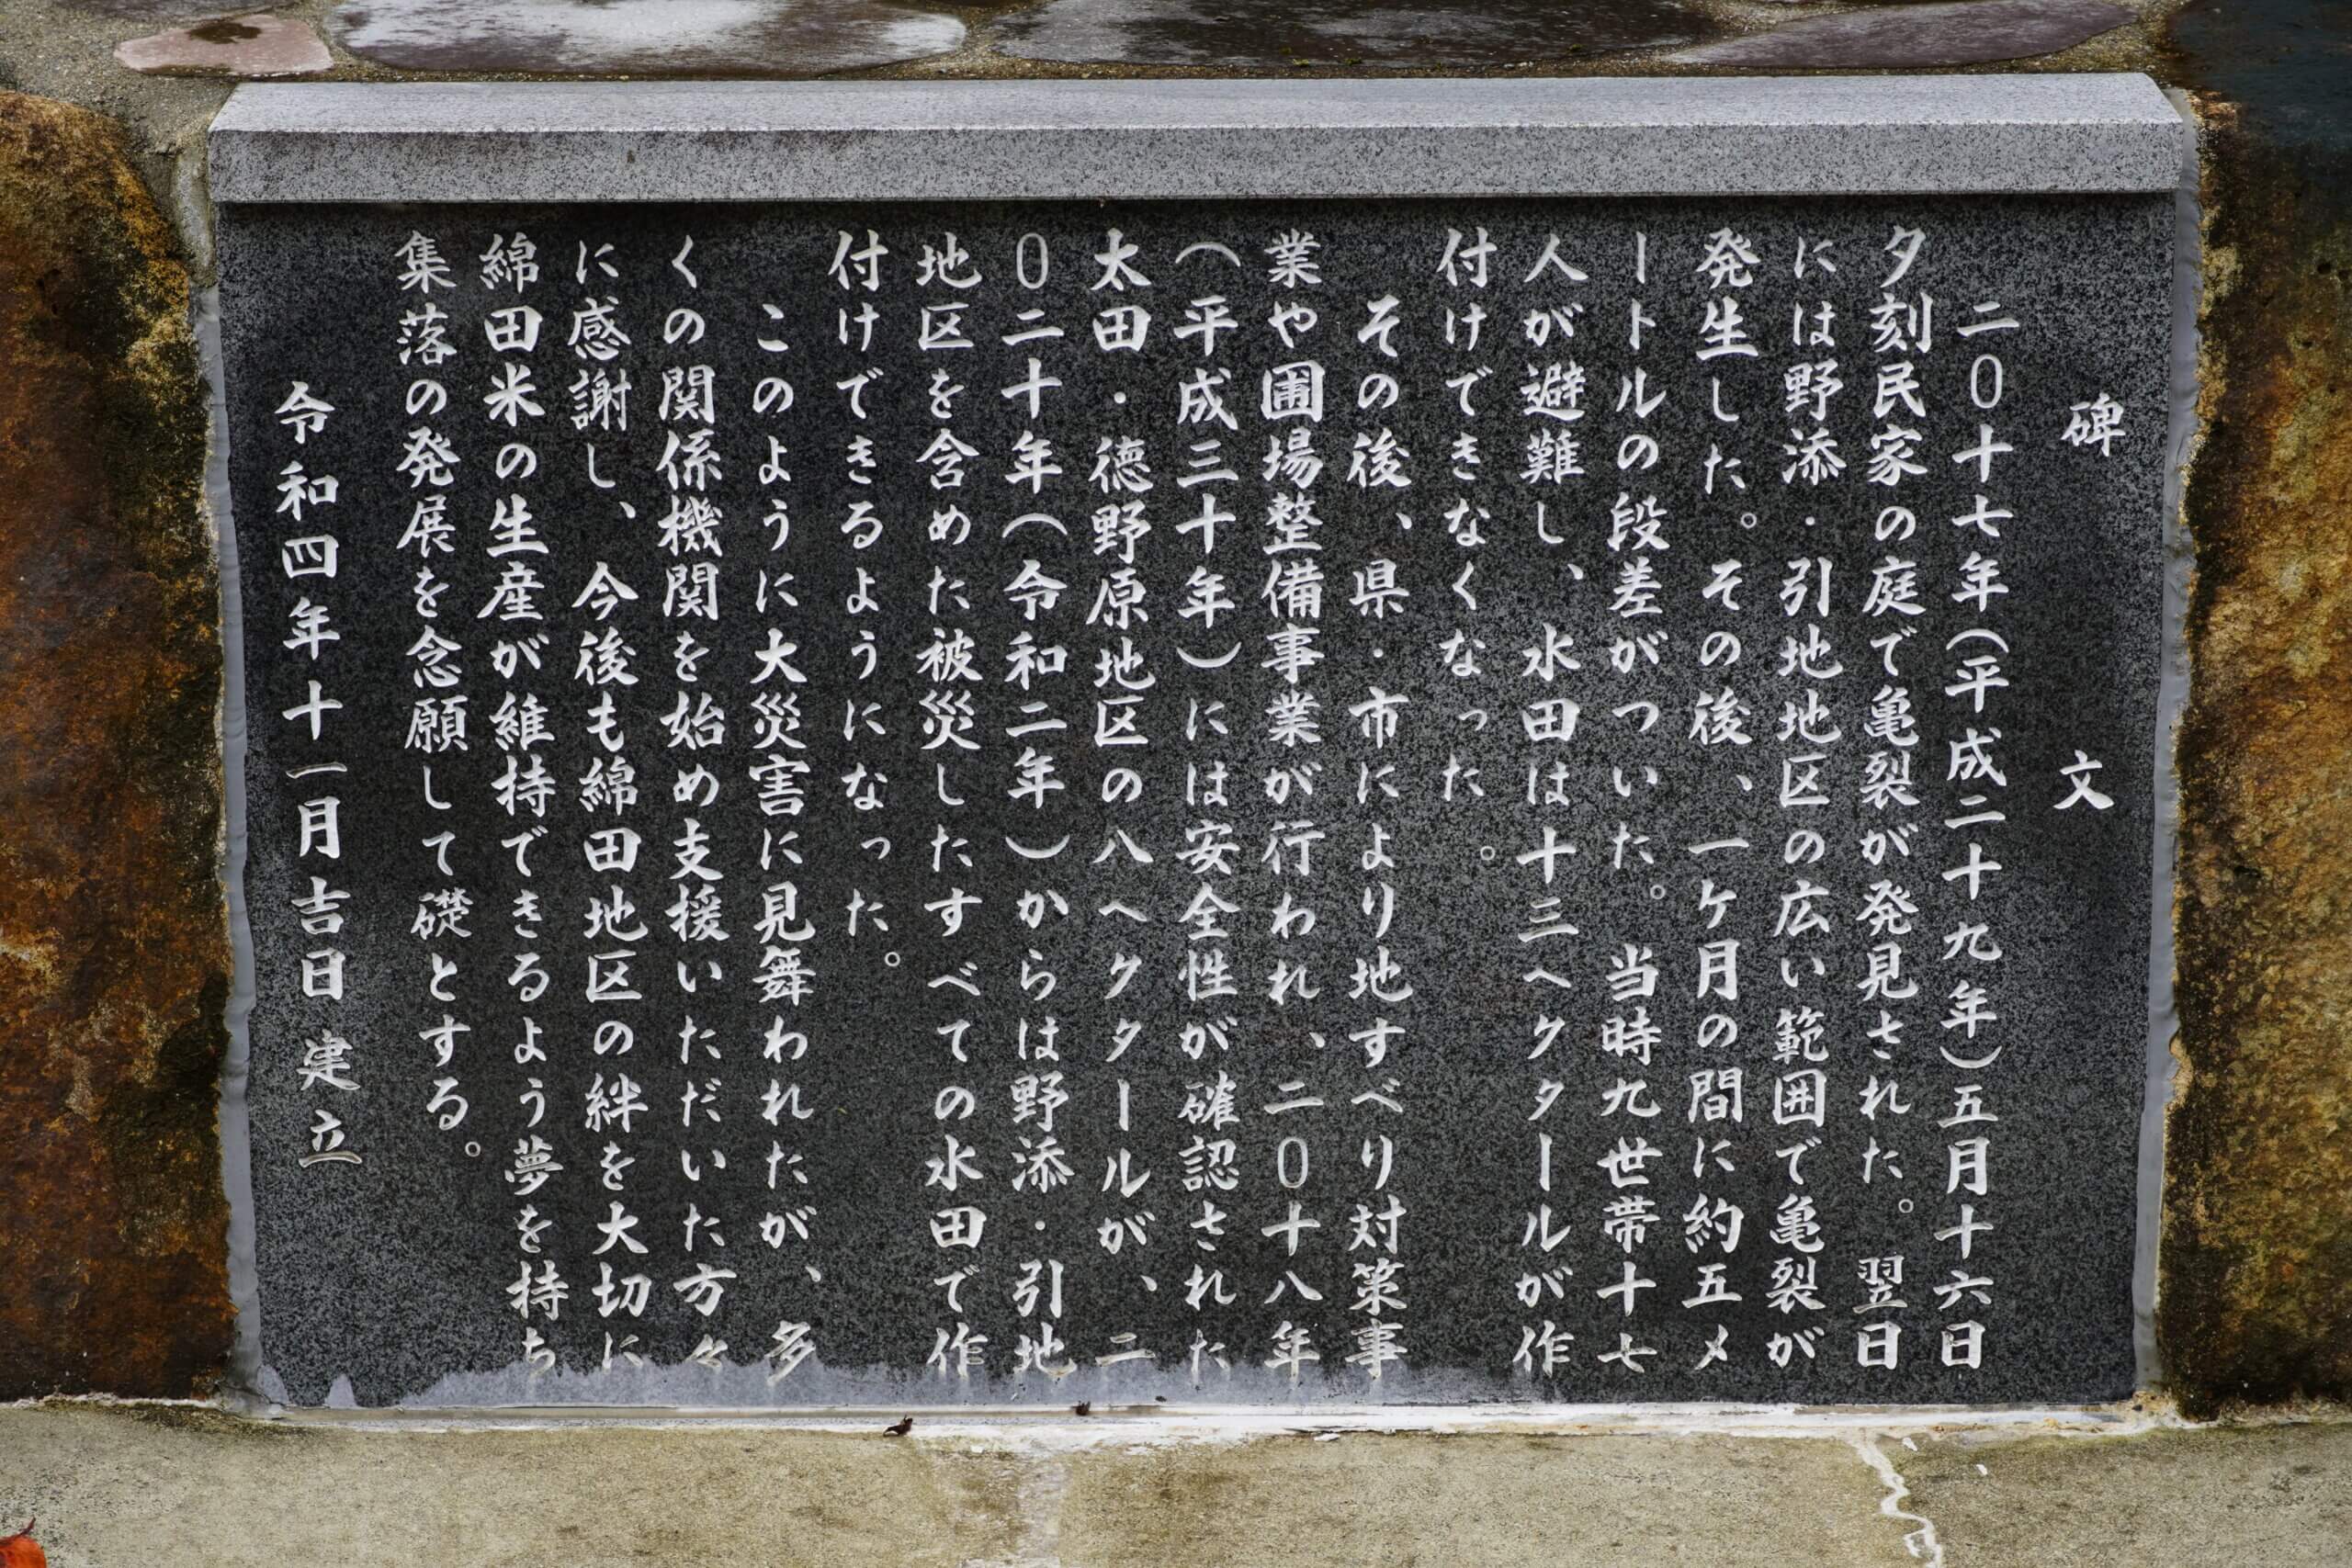 碑文
二〇十七年(平成二十九年)五月十六日
夕刻民家の庭で亀裂が発見された。翌日
には野添・引地地区の広い範囲で亀裂が
発生した。その後、一ケ月の間に約五メ
ートルの段差がついた。当時九世帯十七
人が避難し、水田は十三ヘクタールが作
付けできなくなった。
その後、県・市により地すべり対策事
業や圃場整備事業が行われ、二〇十八年
(平成三十年)には安全性が確認された
太田・徳野原地区の八ヘクタールが、二
〇二十年(令和二年)からは野添・引地
地区を含めた被災したすべての水田で作
付けできるようになった。
このように大災害に見舞われたが、多
くの関係機関を始め支援いただいた方々
に感謝し、今後も綿田地区の絆を大切に
綿田米の生産が維持できるよう夢を持ち
集落の発展を念願して礎とする。
令和四年十一月吉日建立